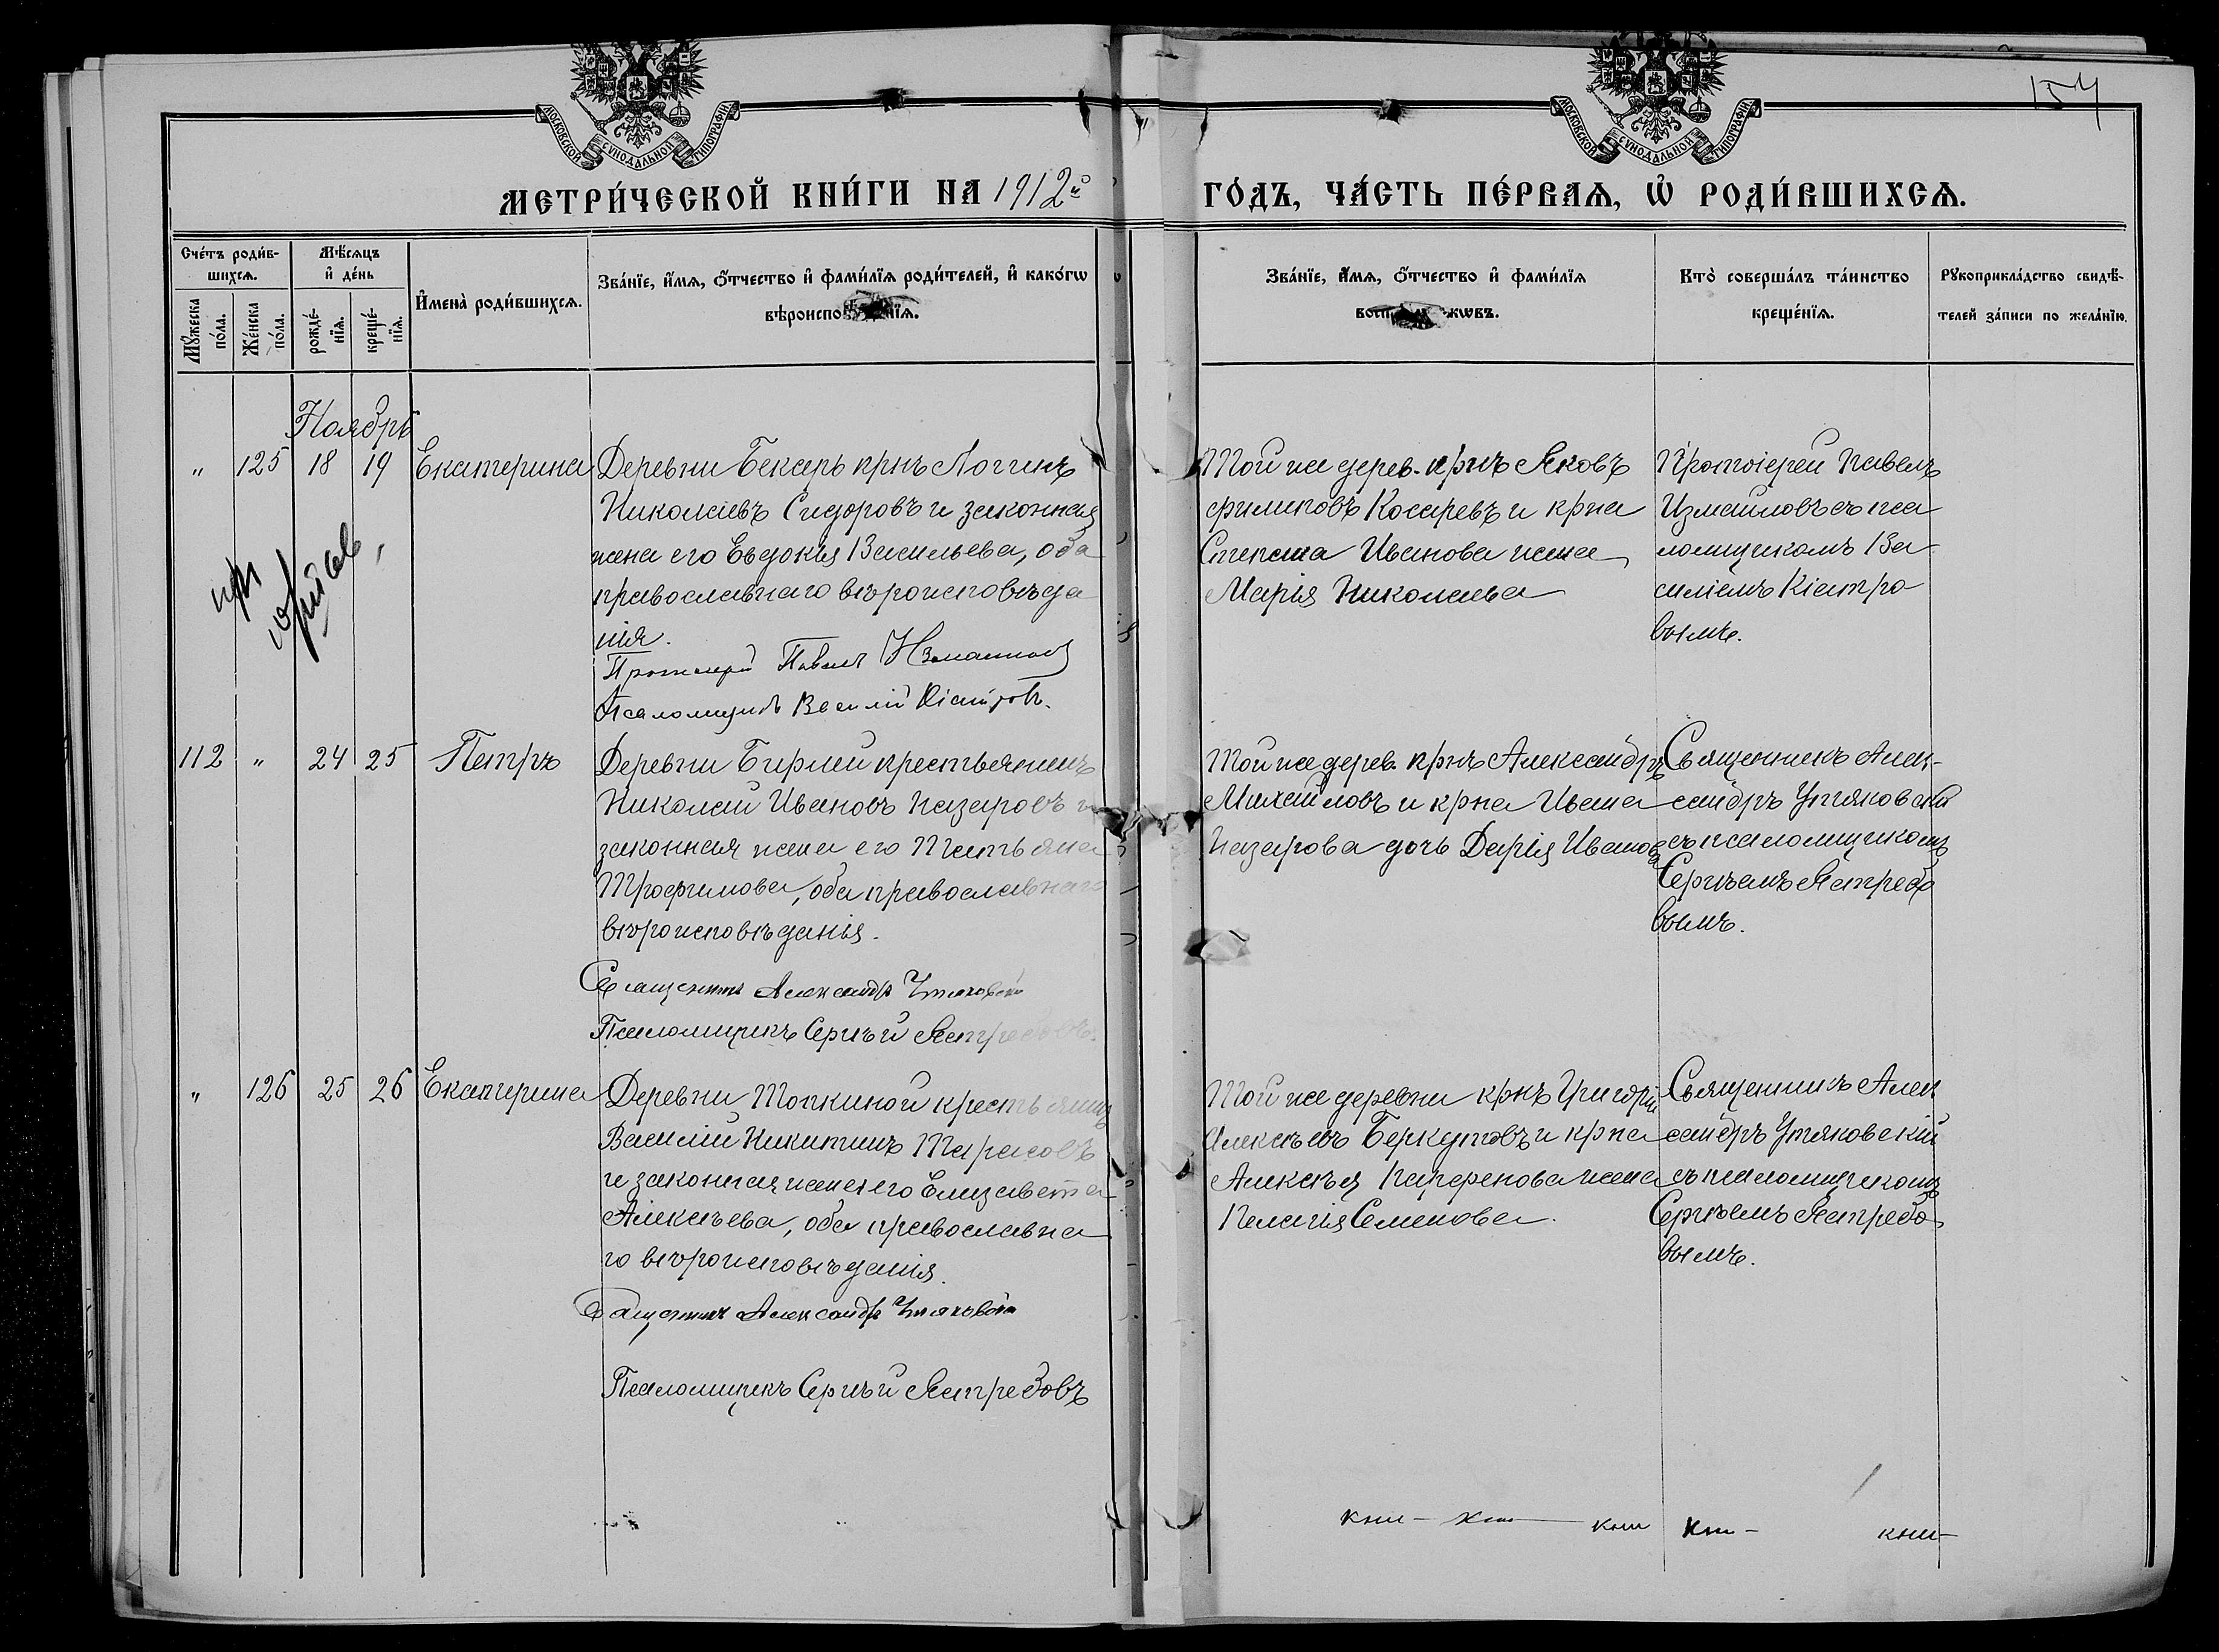 МОСКОВСКОЙ СУНОДАЛЬНОЙ ТИПОГРАФІИ
МОСКОВСКОЙ СУНОДАЛЬНОЙ ТИПОГРАФІИ
154
МЕТРИ́ЧЕСКОЙ КНИ́ГИ НА 1912й ГО́ДЪ, ЧА́СТЬ ПЕ́РВАѦ, Ѡ҆ РОДИ́ВШИХСѦ.
Сче́тъ роди́в-
шихсѧ.
Мꙋ́жеска по́ла.
Же́нска по́ла.
Мѣ́сѧцъ
и҆ де́нь
рожде́-
нїѧ.
креще́-
нїѧ.
И҆мена̀ роди́вшихсѧ.
Зва́нїе, и҆́мѧ, ѻ҆́тчество и҆ фами́лїѧ роди́телей, и҆ како́гѡ
вѣроиспо нїѧ.
Зва́нїе, и҆́мѧ, ѻ҆́тчество и҆ фами́лїѧ
Кто̀ соверша́лъ та́инство
креще́нїѧ.
Рꙋкоприкла́дство свидѣ́-
телей за́писи по жела́нїю.
Ноябрь
" 125 18 19 Екатерина
Деревни Бекарь крнъ Логгинъ
Николаевъ Сидоровъ и законная
жена его Евдокія Васильева, оба
православнаго вѣроисповѣда
нія.
Протоіерей Павелъ Измаиловъ
Псаломщикъ Василій Кіатровъ.
Той же дерев. крнъ Яковъ
Филиповъ Косаревъ и крна
Степана Иванова жена
Марія Николаева
Протоіерей Павелъ
Измаиловъ съ пса
ломщикомъ Ва
силіемъ Кіатро
вымъ.
112 " 24 25 Петръ
Деревни Бирлей крестьянинъ
Николай Ивановъ Назаровъ и
законная жена его Татьяна
Трофимова, оба православнаго
вѣроисповѣданія.
Священникъ Александръ Утяковскій
Псаломщикъ Сергѣй Ястребовъ.
Той же дерев. крнъ Александръ
Михайловъ и крна Ивана
Назарова дочь Дарія Иванова
Священникъ Алек-
сандръ Утяковскій
съ псаломщикомъ
Сергѣемъ Ястребо
вымъ.
" 126 25 26 Екатерина
Деревни Топкиной крестьянинъ
Василій Никитинъ Тарасовъ
и законная жена его Елизавета
Алексѣева, оба православна
го вѣроисповѣданія.
Священникъ Александръ Утяковскій
Псаломщикъ Сергѣй Ястребовъ
Той же деревни крнъ Григорій
Алексѣевъ Беркутовъ и крна
Алексѣя Парфенова жена
Пелагія Семенова.
Священникъ Алек
сандръ Утяковскій
съ псаломщикомъ
Сергѣемъ Ястребо
вымъ.